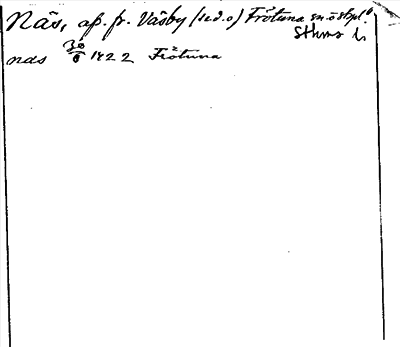 Näs, af. fr. Väsby (se d. o) Frötuna sn o skpl.
Sthms l.
nds 30/6 1422 Frötuna